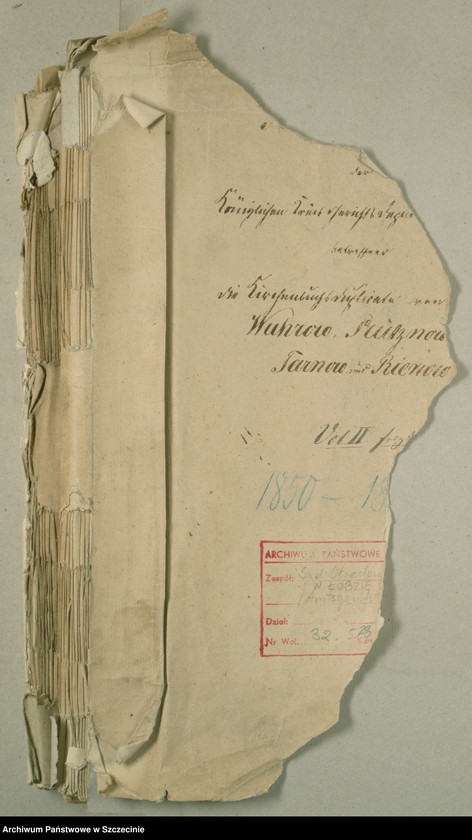 der
Königlichen Kreis Gerichts
betreffend
die Kirchenbuchs Duplicate von
Wuhrow,
Tarnow und
Vol II
1850 – 18
ARCHIWUM PAŃSTWOWE
Zespół: Sąd Obwodowy
W ŁOBZIE
Amtsgericht
Dział:
Nr Wol. 32.
Archiwum Państwowe w Szczecinie